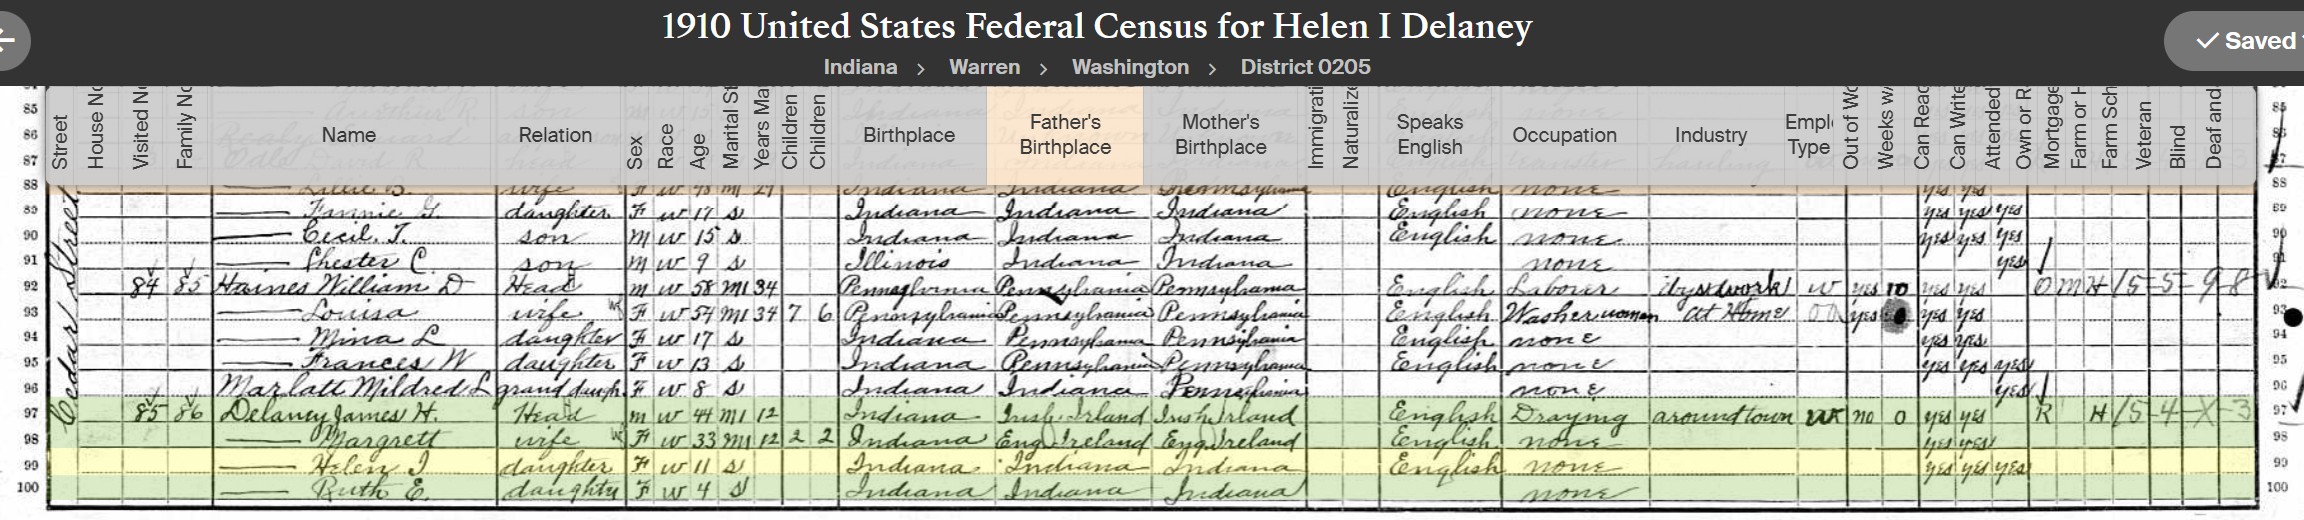 1910 United States Federal Census for Helen I Delaney
Saved
Indiana > Warren > Washington > District 0205
Street House No Visited No Family No Name Relation Sex Race Age Marital St Years Ma Children Children Birthplace Father's Birthplace Mother's Birthplace Immigrati Naturalize Speaks English Occupation Industry Emplo Type Out of Wo Weeks w Can Read Can Write Attended Own or R Mortgage Farm or H Farm Sch Veteran Blind Deaf and
85
86
87
Cedar Street
88 Lillie B. wife F w M1 Indiana Indiana Pennsylvania English none yes yes 88
89 Fannie G. daughter F w 17 S Indiana Indiana Indiana English none yes yes yes 89
90 Cecil. T. son m w 15 S Indiana Indiana Indiana English none yes yes yes 90
91 Chester C. son m w 9 S Illinois Indiana Indiana none yes 91
92 84 85 Haines William D Head m w 58 M1 34 Pennsylvania Pennsylvania Pennsylvania English Labourer W yes 10 yes yes O M H 15-5-9-8 92
93 Louisa wife F w 54 M1 34 7 6 Pennsylvania Pennsylvania Pennsylvania English Washerwoman At Home yes yes yes 93
94 Mina L daughter F w 17 S Indiana Pennsylvania Pennsylvania English none yes yes 94
95 Frances W daughter F w 13 S Indiana Pennsylvania Pennsylvania English none yes yes yes 95
96 Marlatt Mildred L grand daugh. F w 8 S Indiana Indiana Pennsylvania none yes 96
97 85 86 Delaney James H. Head m w 44 M1 12 Indiana Irish Irland Irish Irland English Draying around town W no 0 yes yes R H 15-4-X-3 97
98 Margrett wife F w 33 M1 12 2 2 Indiana Eng Ireland Eng Ireland English none yes yes 98
99 Helen I daughter F w 11 S Indiana Indiana Indiana English none yes yes yes 99
100 Ruth E. daughter F w 4 S Indiana Indiana Indiana none 100